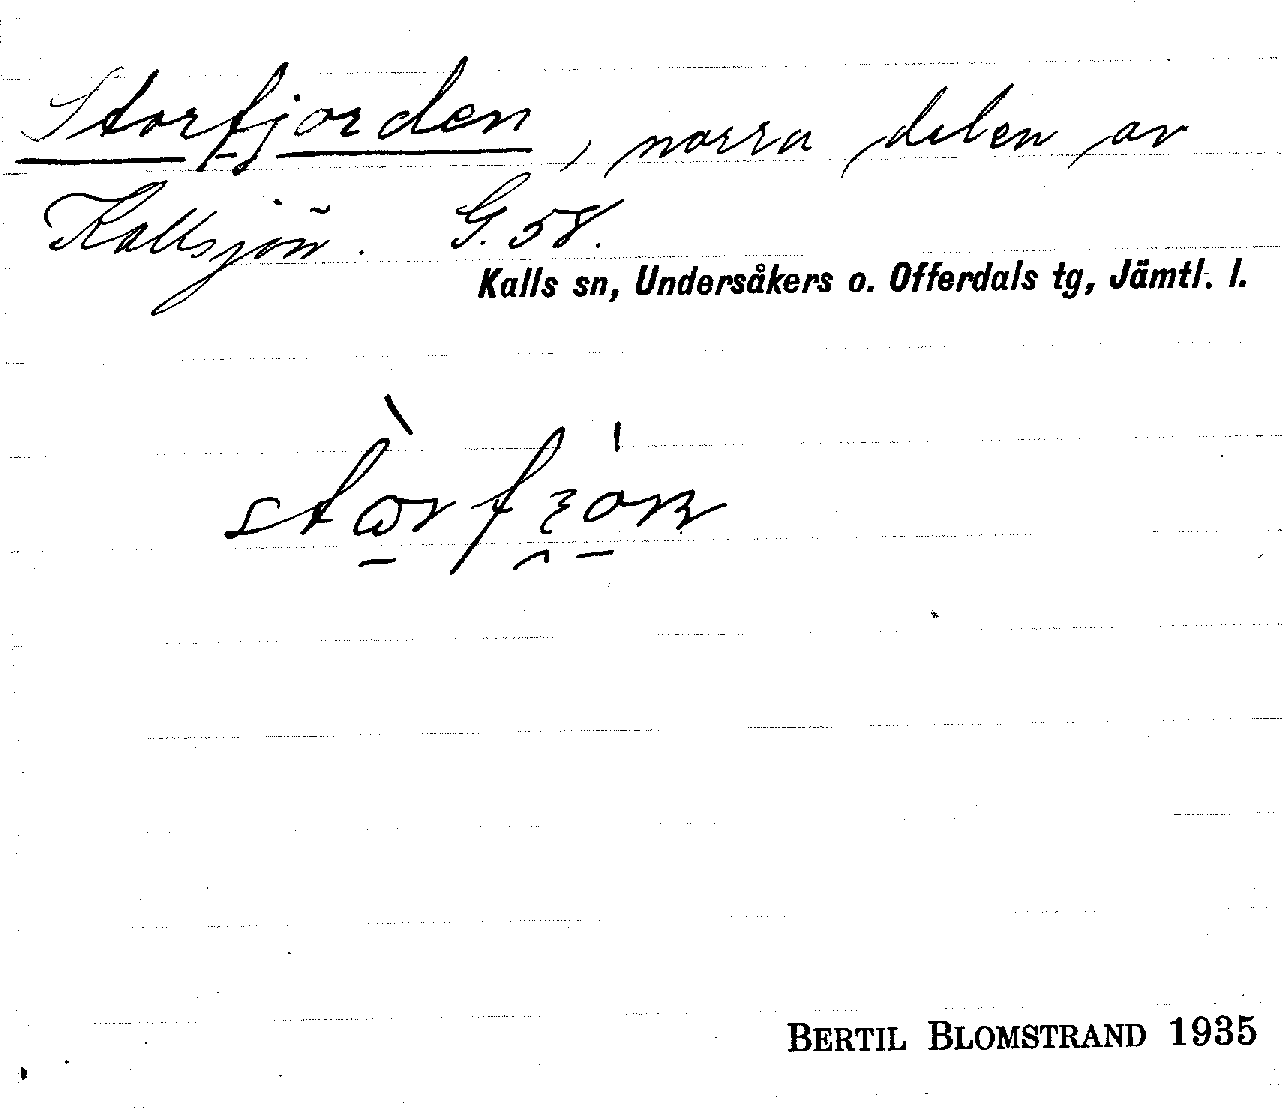 Storfjorden, norra delen av
Kallsjön. G. 58.
Kalls sn, Undersåkers o. Offerdals tg, Jämtl. l.
BERTIL BLOMSTRAND 1935